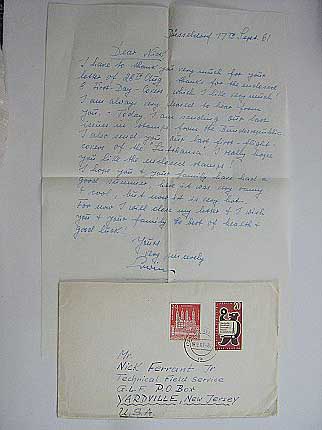 Düsseldorf 17th Sept. 61
Dear Nick,
I have to thank you very much for your
letter of 28th Aug & thanks for the enclosed
First-Day-Cover which I like very much
I am always very glad to hear from
you. - Today I am sending our last
issues in stamps from the Bundesrepublik
I also send you our last first-flight-
covers of the "Lufthansa". I really hope
you like the enclosed stamps!
I hope you & your family have had a
good summer, here it was very rainy
& cool, but now it is very hot.
For now I will close my letter & I wish
you & your family the best of health &
good luck!
Yours
very sincerely
Mr.
Nick Ferrant Jr
Technical Field Service
G.L.F. P.O. Box
YARDVILLE, New Jersey
U.S.A.